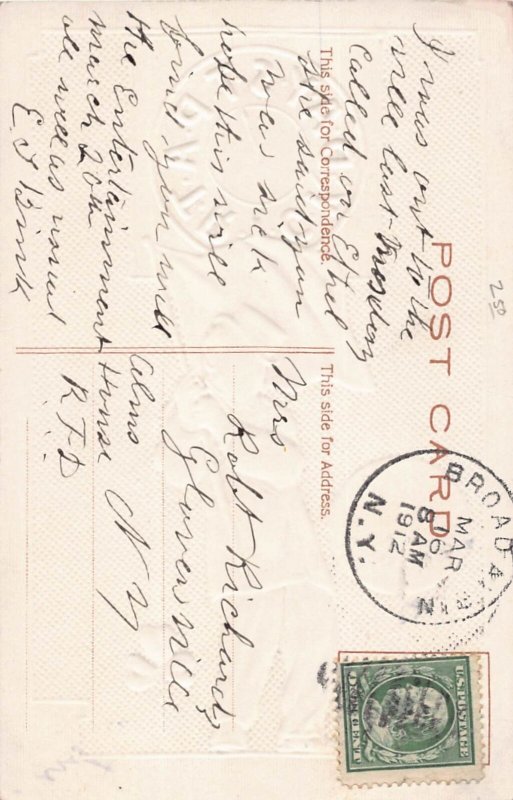 POST CARD
This side for Correspondence.
This side for Address.
I was out to the
ville last Mosday
Called on Ethel
She said you
was sick
hope this will
find you well
the Entertainment
March 20th
all well as usual
E.J.
Mrs
Robt Richards
Gloversville
Alms
House N Y
R.F.D
BROADALBIN
MAR
16
8 AM
1912
N.Y.
U.S. POSTAGE
ONE CENT
250